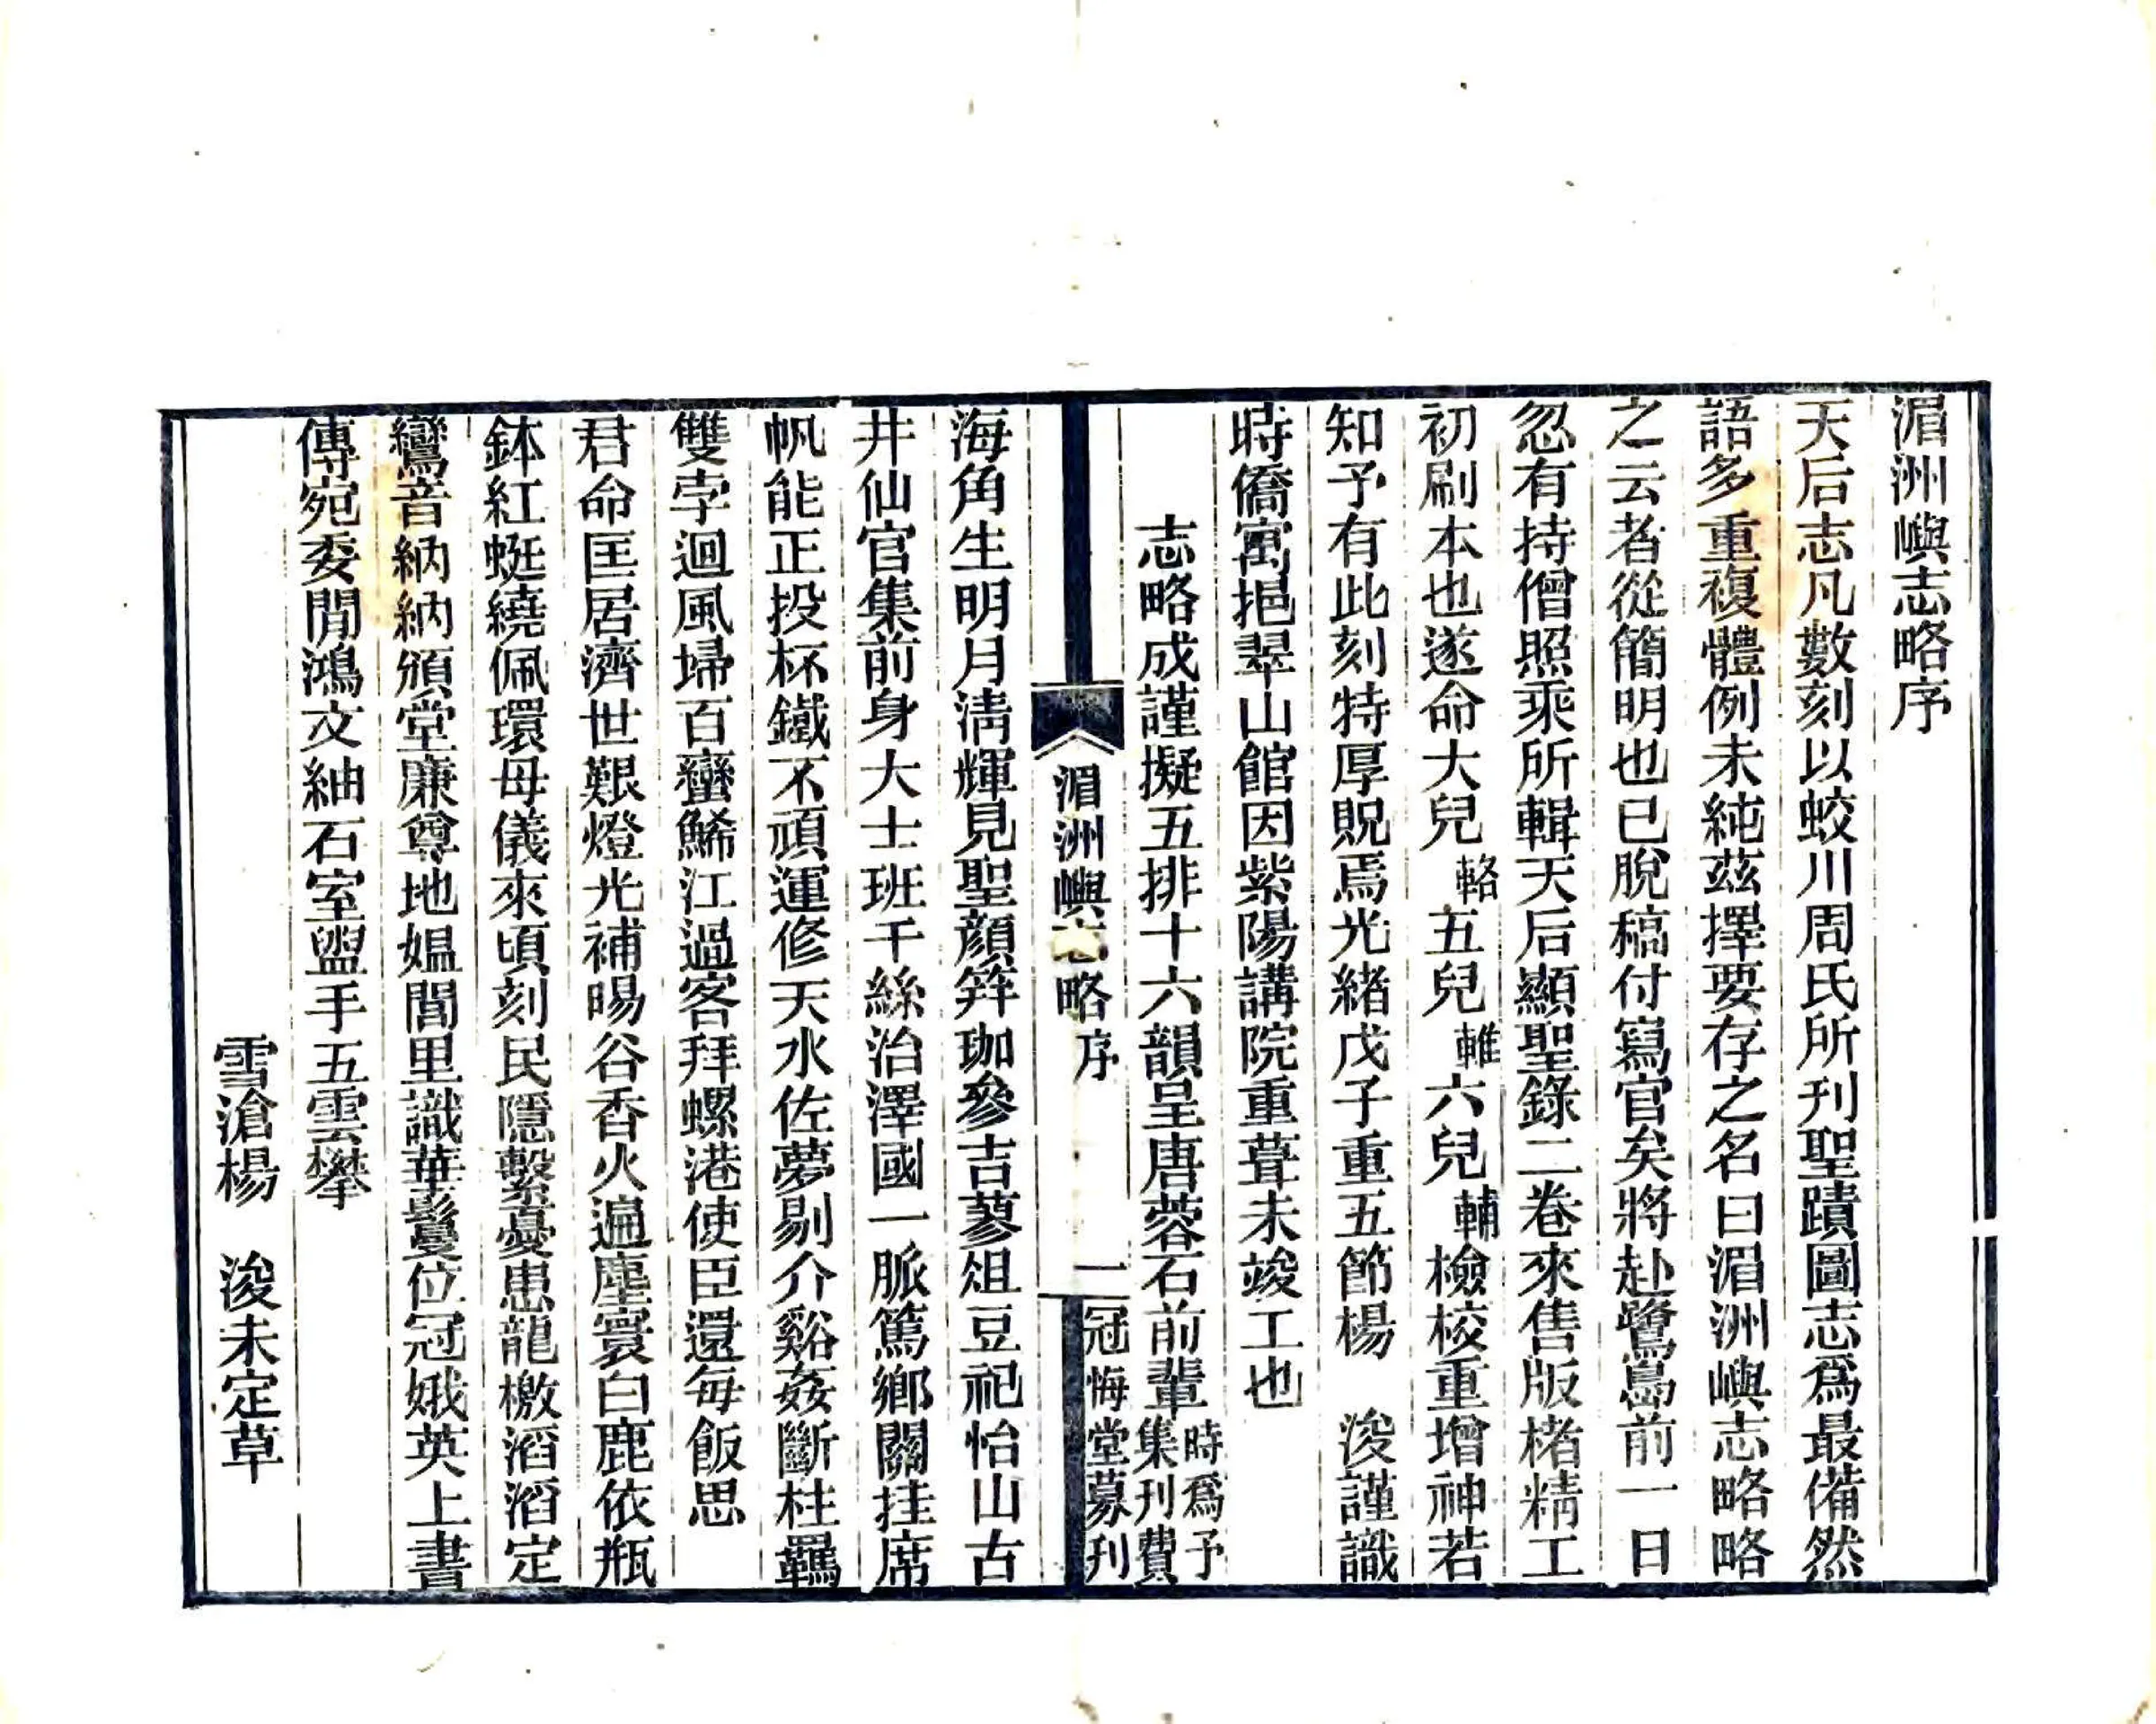 湄洲嶼志略序
天后志凡數刻以蛟川周氏所刊聖蹟圖志爲最備然
語多重複體例未純茲擇要存之名曰湄洲嶼志略略
之云者從簡明也已脫稿付寫官矣將赴鷺島前一日
忽有持僧照乘所輯天后顯聖錄二卷來售版楮精工
初刷本也遂命大兒輅五兒輫六兒輔檢校重增神若
知予有此刻特厚貺焉光緒戊子重五節楊　浚謹識
時僑寓挹翠山館因紫陽講院重葺未竣工也
志略成謹擬五排十六韻呈唐蓉石前輩時爲予集刊費
湄洲嶼志略　序　一　冠悔堂募刊
海角生明月淸輝見聖顏笄珈參吉蓼俎豆祀怡山古
井仙官集前身大士班千絲治澤國一脈篤鄉關挂席
帆能正投杯鐵不頑運修天水佐夢剔介谿姦斷柱羈
雙孛迴風埽百蠻鯑江過客拜螺港使臣還每飯思
君命匡居濟世艱燈光補暘谷香火遍塵寰白鹿依瓶
鉢紅蜓繞佩環母儀來頃刻民隱繫憂患龍檄滔滔定
鸞音納納頒堂廉尊地媼閭里識華鬘位冠娥英上書
傳宛委閒鴻文紬石室盥手五雲攀
雪滄楊　浚未定草